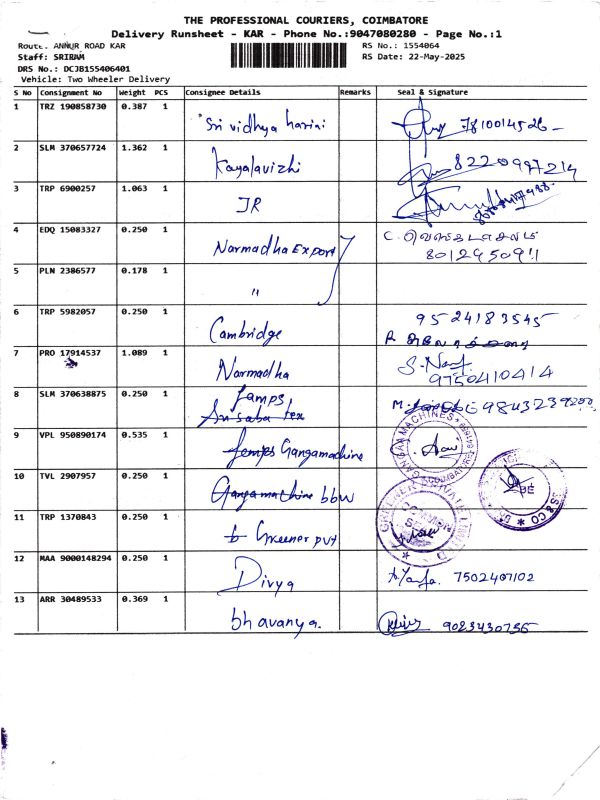 THE PROFESSIONAL COURIERS, COIMBATORE
Delivery Runsheet - KAR - Phone No.:9047080280 - Page No.:1
Route. ANNUR ROAD KAR
RS No.: 1554064
Staff: SRIRAM
RS Date: 22-May-2025
DRS No.: DCJB155406401
Vehicle: Two Wheeler Delivery
S No Consignment No Weight PCS Consignee Details Remarks Seal & Signature
1 TRZ 190858730 0.387 1
Sri vidhya harini 7810014526
2 SLM 370657724 1.362 1
Kayalavizhi 8220997214
3 TRP 6900257 1.063 1
JR
4 EDQ 15083327 0.250 1
Narmadha Export
8012950911
5 PLN 2386577 0.178 1
"
6 TRP 5982057 0.250 1
Cambridge 9524183545
7 PRO 17914537 1.089 1
Narmadha
9750410414
8 SLM 370638875 0.250 1
Jamps
Srisaba tex
9843239200
9 VPL 950890174 0.535 1
Jemps Gangamachine
GANGAA MACHINES
10 TVL 2907957 0.250 1
Gangamachine bbw
11 TRP 1370843 0.250 1
Greener pvt
12 MAA 9000148294 0.250 1
Divya 7502407102
13 ARR 30489533 0.369 1
bhavanya. 9023430755